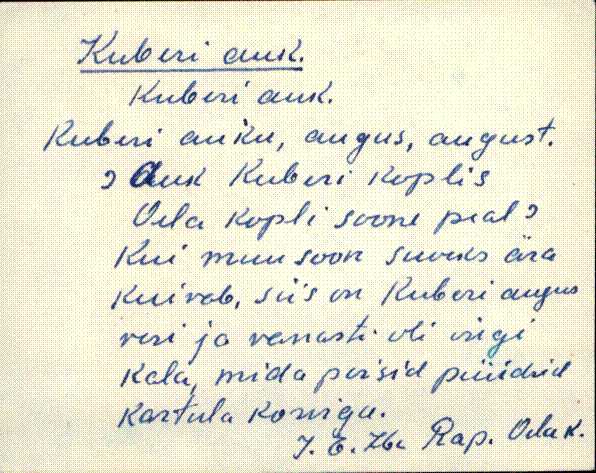 Kuberi auk.
Kuberi auk.
Kuberi auku, augus, august.
Auk Kuberi koplis
Oela kopli soone peal
Kui muu soon suveks ära
kuivab, siis on Kuberi augus
vesi ja vanasti oli isegi
kala, mida poisid püüdsid
kartula korviga.
J. E. Rap. Oela k.